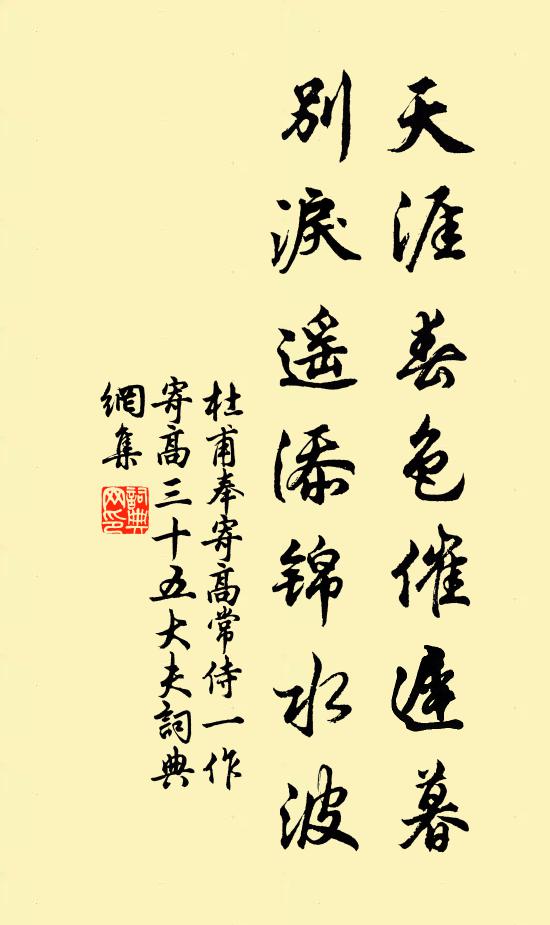 天涯春色催遲暮
別淚遥添錦水波
杜甫奉寄高常侍一作
寄高三十五大夫詞典
網集
詞典
网印